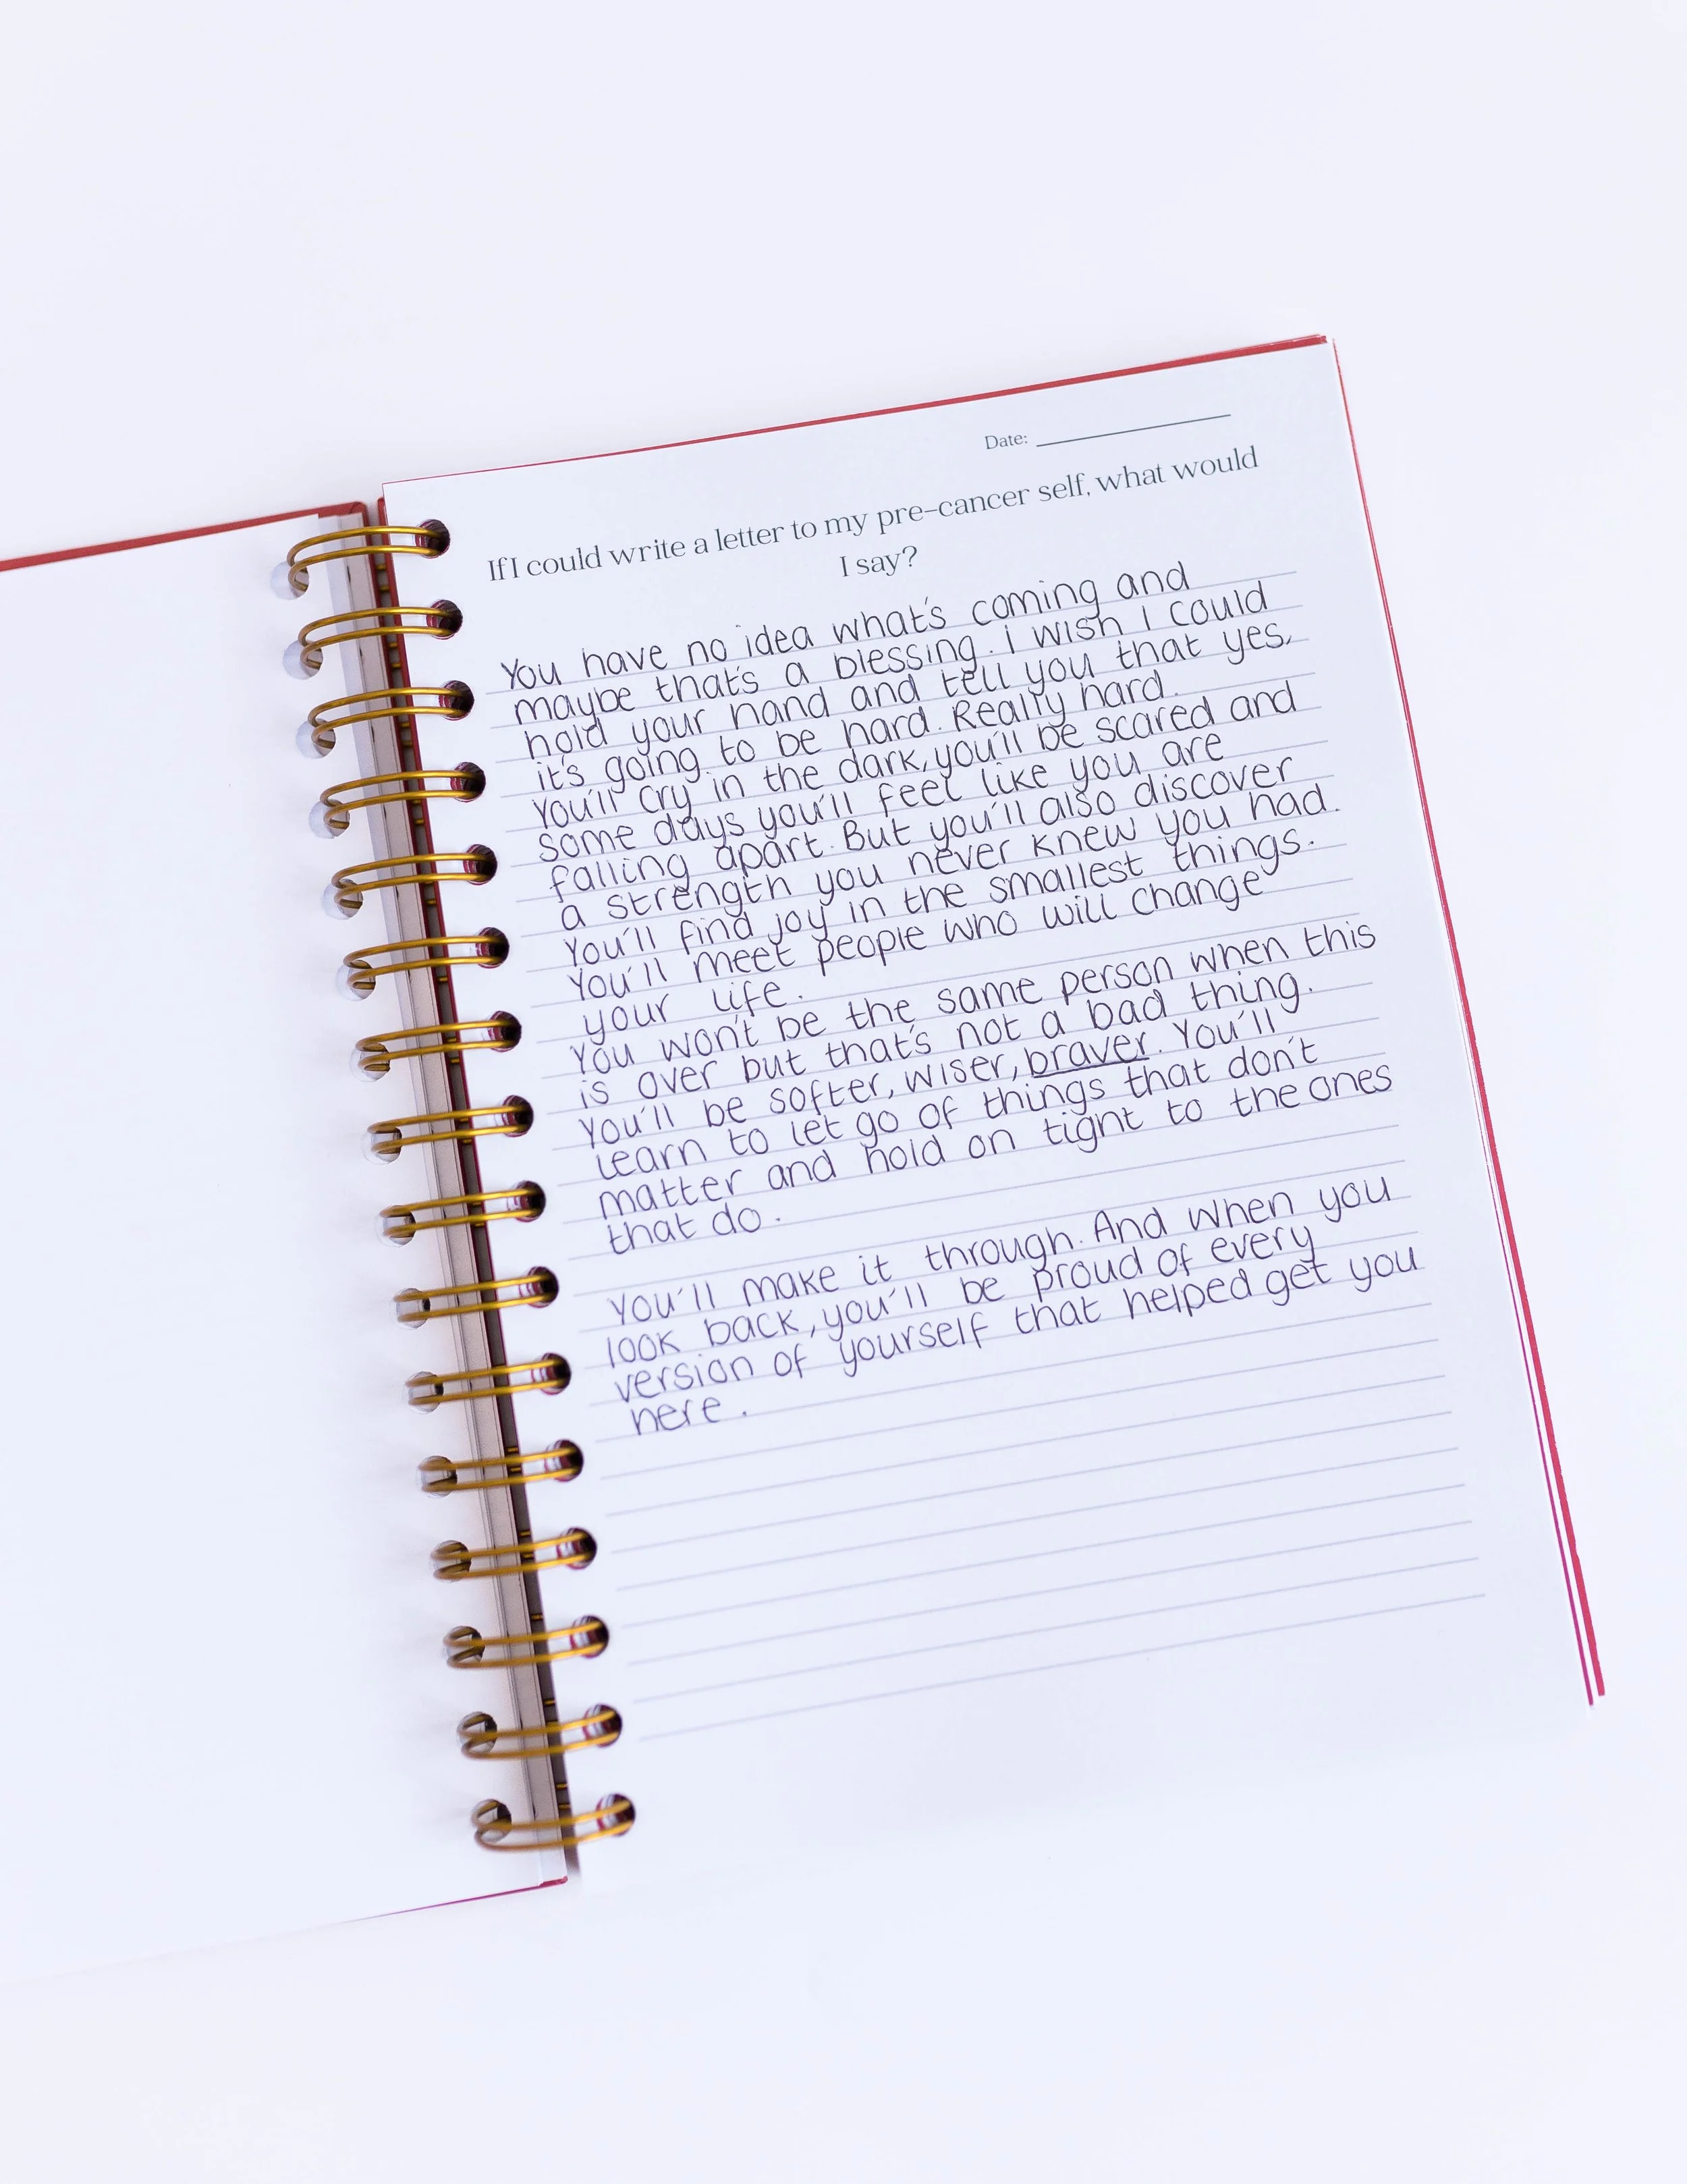 Date:
If I could write a letter to my pre-cancer self, what would
I say?
You have no idea what's coming and
maybe that's a blessing. I wish I could
hold your hand and tell you that yes,
it's going to be hard. Really hard.
You'll cry in the dark, you'll be scared and
some days you'll feel like you are
falling apart. But you'll also discover
a strength you never knew you had.
You'll find joy in the smallest things.
You'll meet people who will change
your life.
You won't be the same person when this
is over but that's not a bad thing.
You'll be softer, wiser, braver. You'll
learn to let go of things that don't
matter and hold on tight to the ones
that do.
You'll make it through. And when you
look back, you'll be proud of every
version of yourself that helped get you
here.